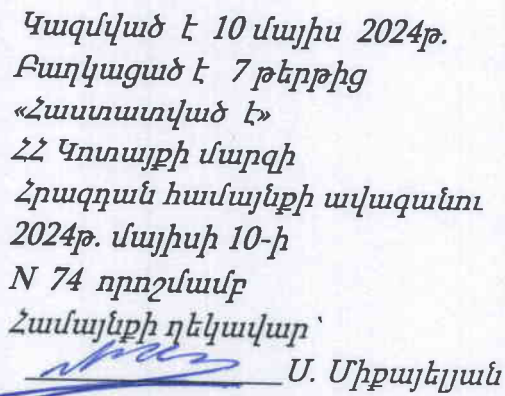 Կազմված է 10 մայիս 2024թ.
Բաղկացած է 7 թերթից
«Հաստատված է»
ՀՀ Կոտայքի մարզի
Հրազդան համայնքի ավագանու
2024թ. մայիսի 10-ի
N 74 որոշմամբ
Համայնքի ղեկավար՝
Ս. Միքայելյան